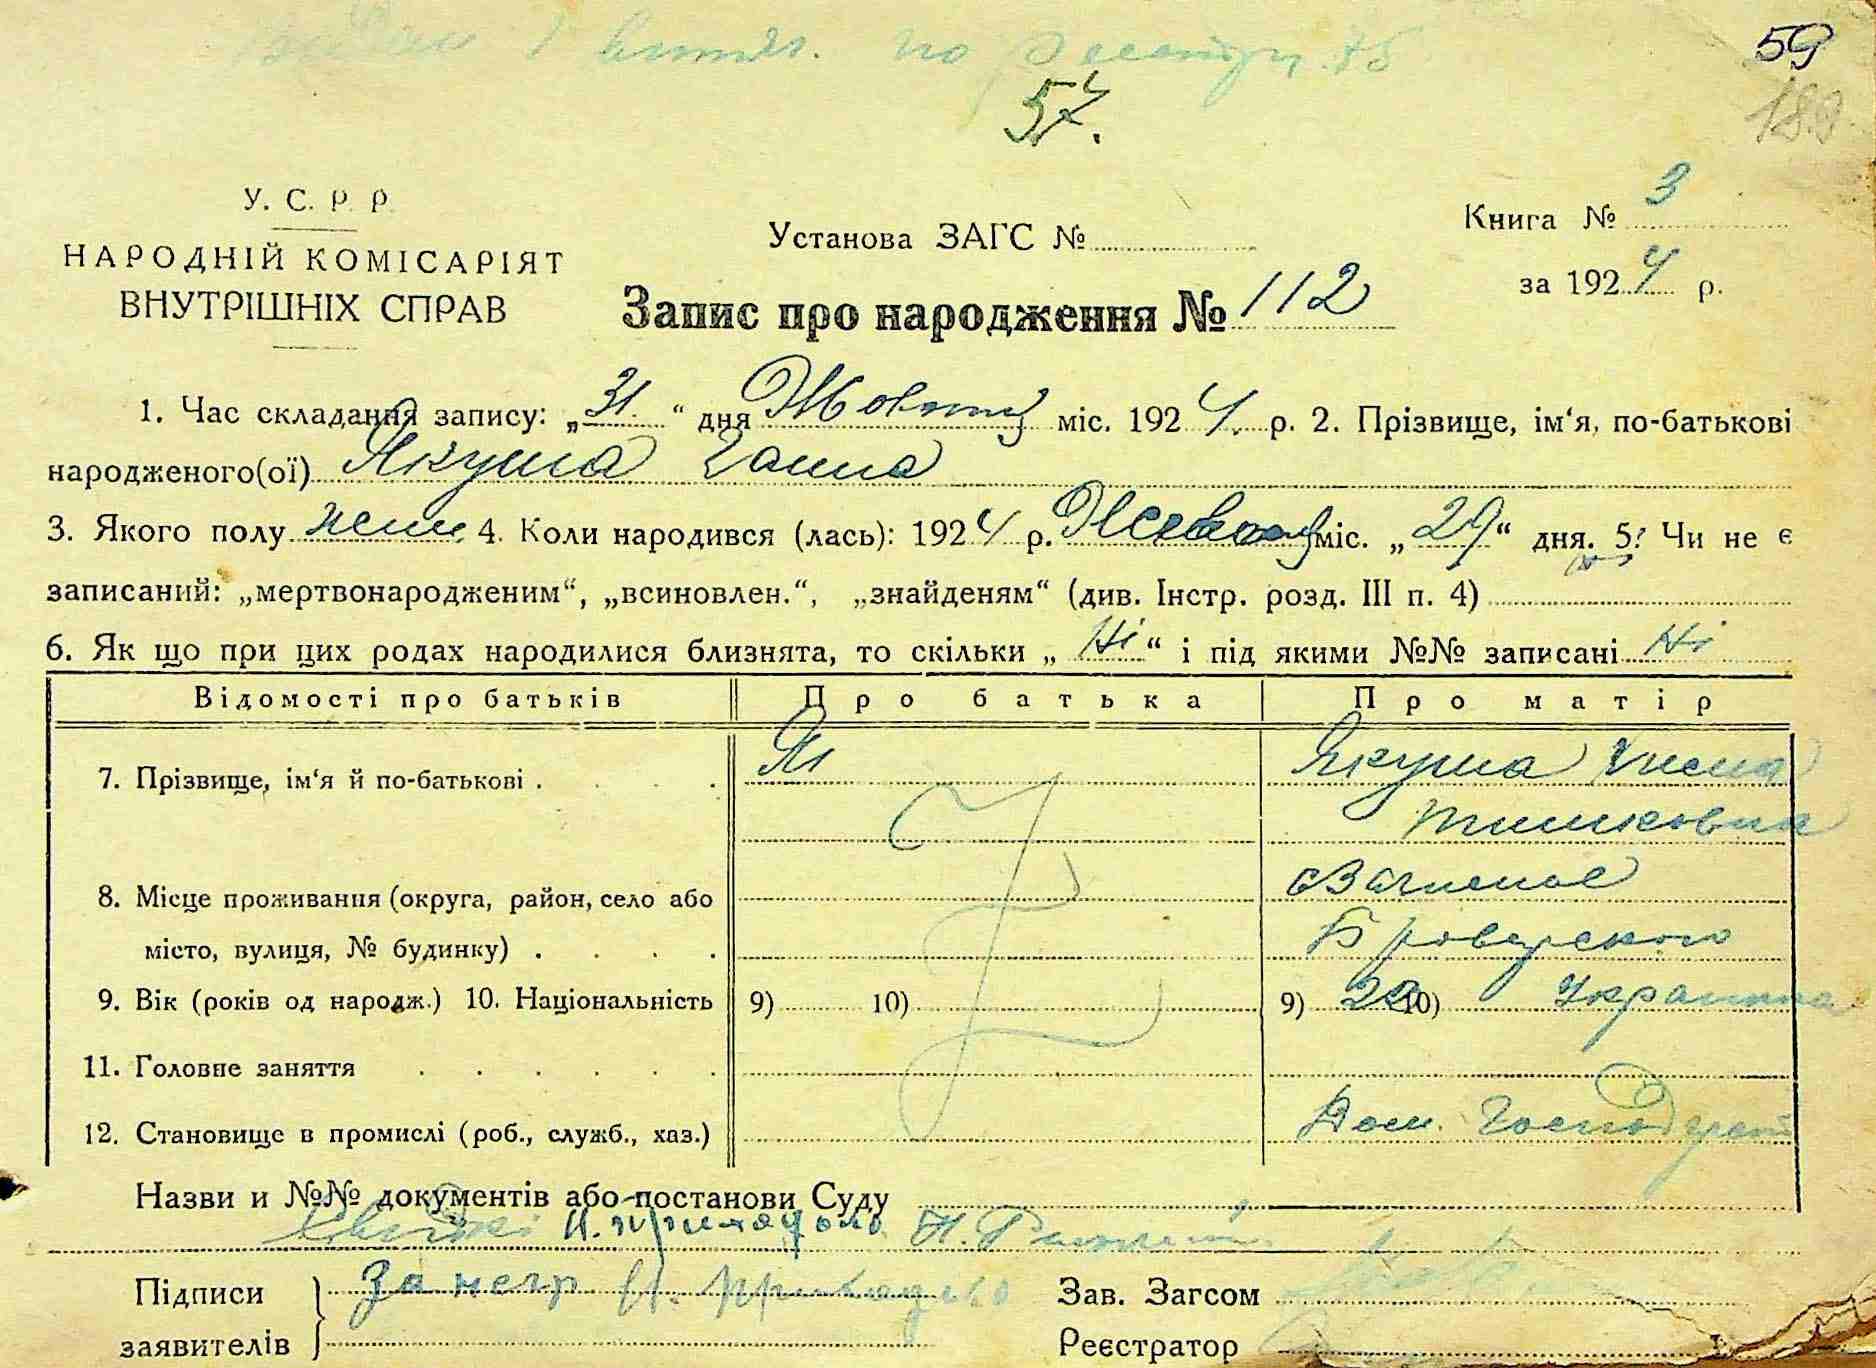 по
59
57.
189
У. С. Р. Р.
НАРОДНІЙ КОМІСАРІЯТ
ВНУТРІШНІХ СПРАВ
Установа ЗАГС №
Книга № 3
за 1924 р.
Запис про народження № 112
1. Час складання запису: „31.“ дня Жовтня міс. 1924. р. 2. Прізвище, ім‘я, по-батькові
народженого(ої) Якуша Ганна
3. Якого полу жін. 4. Коли народився (лась): 1924 р. Жовтня міс. „29“ дня. 5. Чи не є
записаний: „мертвонародженим“, „всиновлен.“, „знайденям“ (див. Інстр. розд. III п. 4)
6. Як що при цих родах народилися близнята, то скільки „Ні“ і під якими №№ записані Ні
Відомості про батьків Про батька Про матір
7. Прізвище, ім‘я й по-батькові Якуша
8. Місце проживання (округа, район, село або
місто, вулиця, № будинку) Броварского
9. Вік (років од народж.) 10. Національність 9) 10) 9) 10) Украинка
11. Головне заняття
12. Становище в промислі (роб., служб., хаз.) Дом.
Назви и №№ документів або постанови Суду
Підписи За негр Н. Приходько Зав. Загсом
заявителів Реєстратор